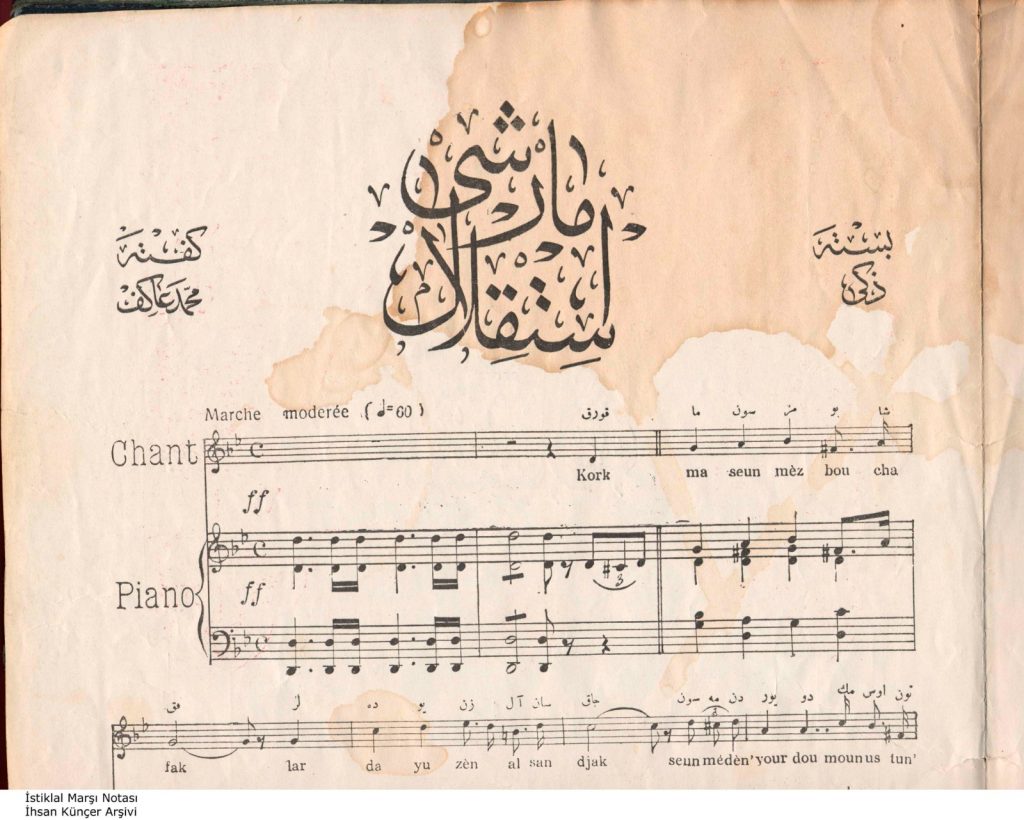 مارشى
استقلال
بسته
ذكى
كفته
محمد عاكف
Marche moderée (𝅗𝅥=60)
قورق ما سون مز بو شا
Chant
Kork ma seun mèz bou cha
ff
Piano
ff
3
فق لر ده يو زن آل سان جاق سون مه دن يور دو مك اوس تون
fak lar da yu zèn al san djak seun médèn' your dou moun us tun'
İstiklal Marşı Notası
İhsan Künçer Arşivi